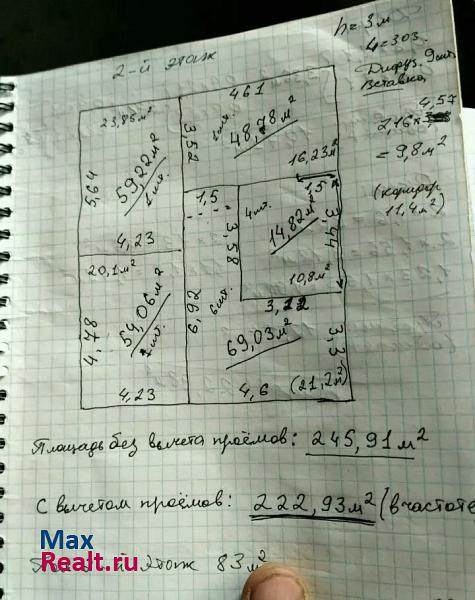 2-й этаж
h = 3 м
4=303.
9 шт.
Вставка
4,57
2,16×
= 9,8 м²
(коридор
11,4 м²)
23,85 м²
5,64
59,22 м²
4,23
461
3,52
48,78 м²
16,23 м²
1,5
1,5
3,58
4 шт.
14,82 м²
3,44
10,8 м²
3,22
20,1 м²
4,78
54,06 м²
4,23
6,92
6 шт.
69,03 м²
3,3
4,6
(21,2 м²)
Площадь без вычета проёмов: 245,91 м²
С вычетом проёмов: 222,93 м² (в чистоте
этаж 83 м²
Max
Realt.ru